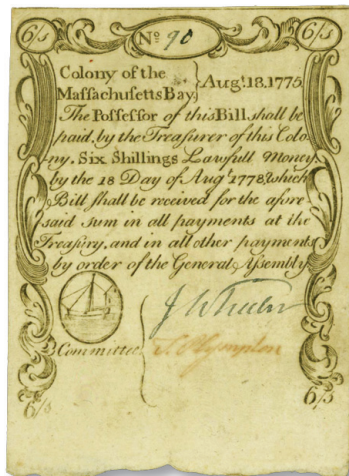 6/s No 90 6/s
Colony of the
Massachusetts Bay } Augt. 18. 1775
The Possessor of this Bill shall be
paid by the Treasurer of this Colo
ny. Six Shillings Lawfull Money
by the 18 Day of Augt. 1778, which
Bill shall be received for the afore
said sum in all payments at the
Treasury, and in all other payments
by order of the General Assembly
Committee
6/s 6/s